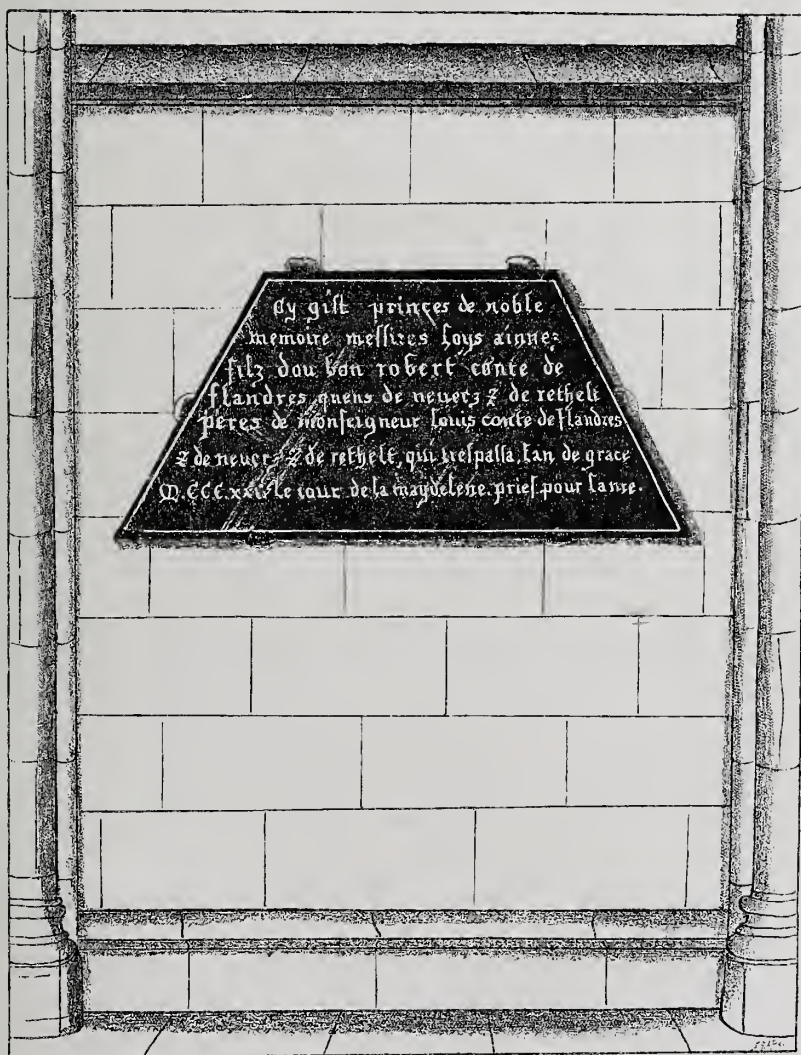 Cy gist princes de noble
memoire messires loys ainnez
filz dou bon robert conte de
flandres quens de neuerz ⁊ de rethelt
peres de monseigneur louis conte de flandres
⁊ de neuerz ⁊ de rethelt, qui trespassa. lan de grace
M.CCC.xxii. le iour de la magdelene. pries. pour lame.